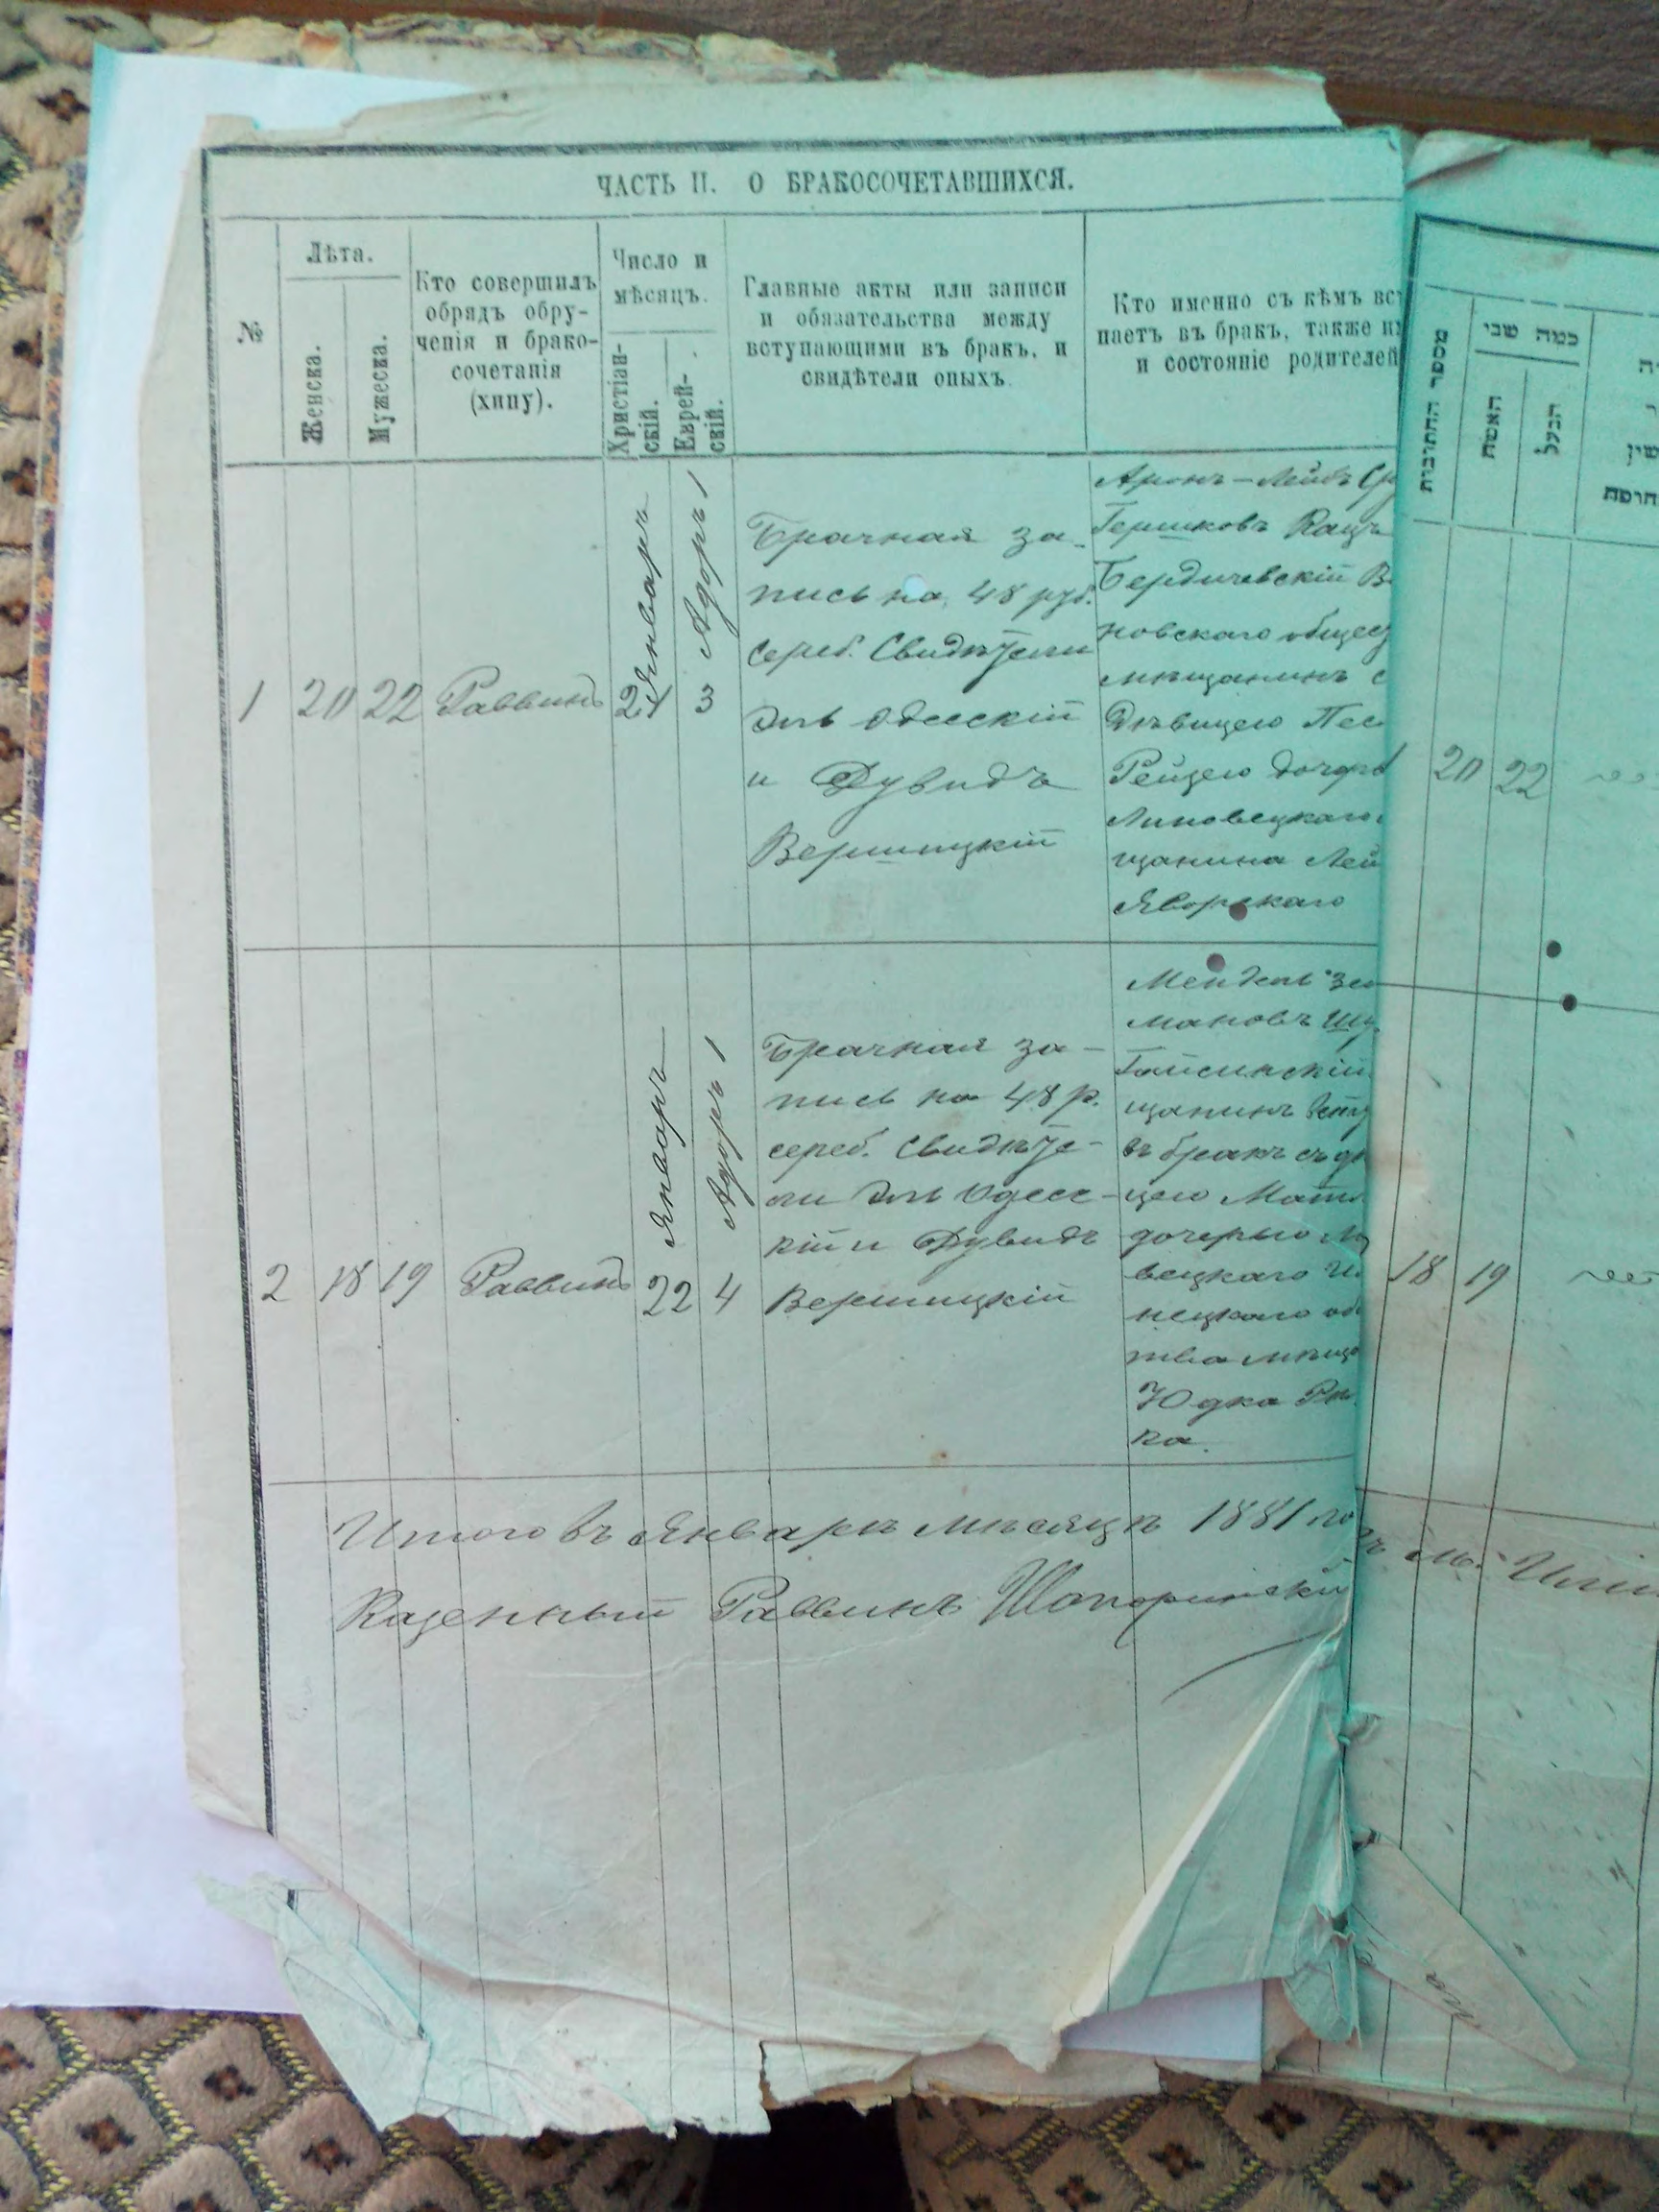 ЧАСТЬ II. О БРАКОСОЧЕТАВШИХСЯ.
№
Лѣта.
Женска.
Мужеска.
Кто совершилъ
обрядъ обру-
ченія и брако-
сочетанія
(хипу).
Число и
мѣсяцъ.
Христіан-
скій.
Еврей-
скій.
Главные акты или записи
и обязательства между
вступающими въ бракъ, и
свидѣтели оныхъ.
Кто именно съ кѣмъ вст
паетъ въ бракъ, также и
и состояніе родителей
1
20
22
Раввинъ
Январь
Адоръ 1
3
Брачная за-
пись на 48 руб.
сереб. Свидѣтели
Эль Одесскій
и Дувидъ
Вершицкій
Аронъ-Лейбъ Ср
Гершковъ Кацъ
Бердичевскій В
новскаго общест
мѣщанинъ с
Дѣвицею Пес
Рейзею дочерью
Липовецкаго
щанина Лей
Яворскаго
2
18
19
Раввинъ
Январь
22
Адоръ 1
4
Брачная за-
пись на 48 р.
сереб. Свидѣте-
ли Эль Одесс-
кій и Дувидъ
Вершицкій
Мендель Зел
мановъ
Гайсинскій
щанинъ всту
въ бракъ съ дѣ
цею Мат
дочерью Ли
вецкаго
нецкаго об
тва мѣща
Юдка
ка.
Итого въ Январѣ мѣсяцѣ 1881 го
Казенный Раввинъ
מספר החתונות
כמה שני
האשה
הבעל
20
22
18
19